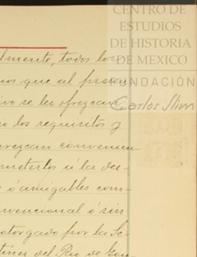 CENTRO DE
ESTUDIOS
DE HISTORIA
DE MEXICO
FUNDACIÓN
Carlos Slim
todos los
que al presen
se les ofrezcan
los requisitos q
crean convenien
meterlos á la de
ó amigables com
vencional ó sin
otorgado por la Se
del Rio de